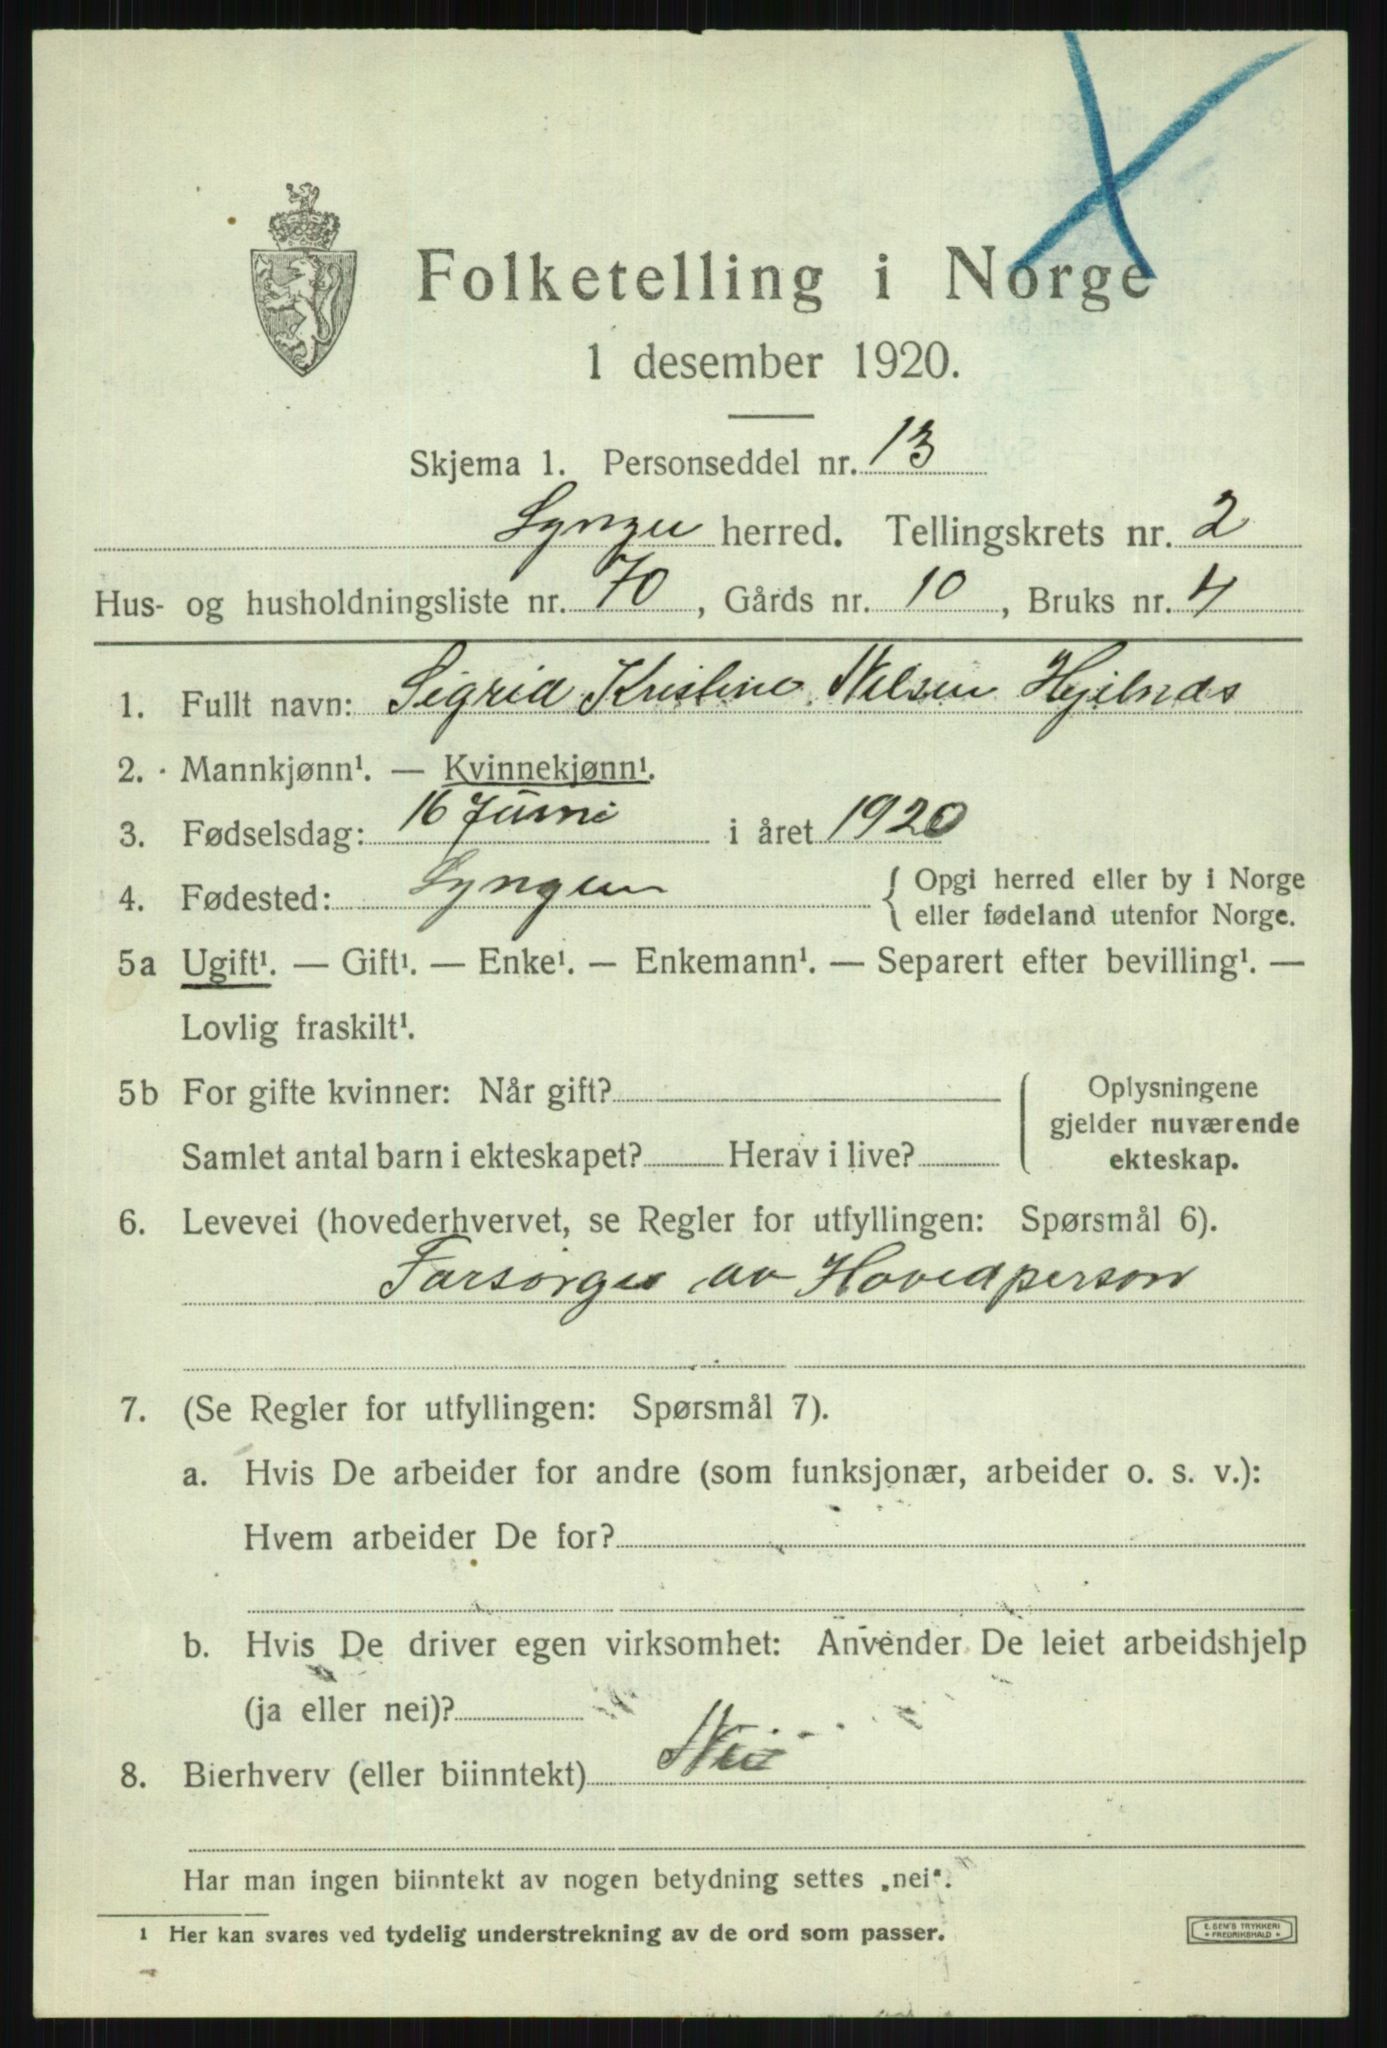 Folketelling i Norge
1 desember 1920.
Skjema 1. Personseddel nr. 13
Lyngen herred. Tellingskrets nr. 2
Hus- og husholdningsliste nr. 70, Gårds nr. 10, Bruks nr. 4
1. Fullt navn: Sigrid Kristine Nilsen Hjelnæs
2. Mannkjønn¹. — Kvinnekjønn¹.
3. Fødselsdag: 16 Juni i året 1920
4. Fødested: Lyngen { Opgi herred eller by i Norge
eller fødeland utenfor Norge.
5a Ugift¹. — Gift¹. — Enke¹. — Enkemann¹. — Separert efter bevilling¹. —
Lovlig fraskilt¹.
5b For gifte kvinner: Når gift? Oplysningene
gjelder nuværende
Samlet antal barn i ekteskapet? Herav i live? ekteskap.
6. Levevei (hovederhvervet, se Regler for utfyllingen: Spørsmål 6).
Forsørges av Hovedperson
7. (Se Regler for utfyllingen: Spørsmål 7).
a. Hvis De arbeider for andre (som funksjonær, arbeider o. s. v.):
Hvem arbeider De for?
b. Hvis De driver egen virksomhet: Anvender De leiet arbeidshjelp
(ja eller nei)?
8. Bierhverv (eller biinntekt) Nei
Har man ingen biinntekt av nogen betydning settes „nei“.
1 Her kan svares ved tydelig understrekning av de ord som passer.
E. SEM'S TRYKKERI
* FREDRIKSHALD *